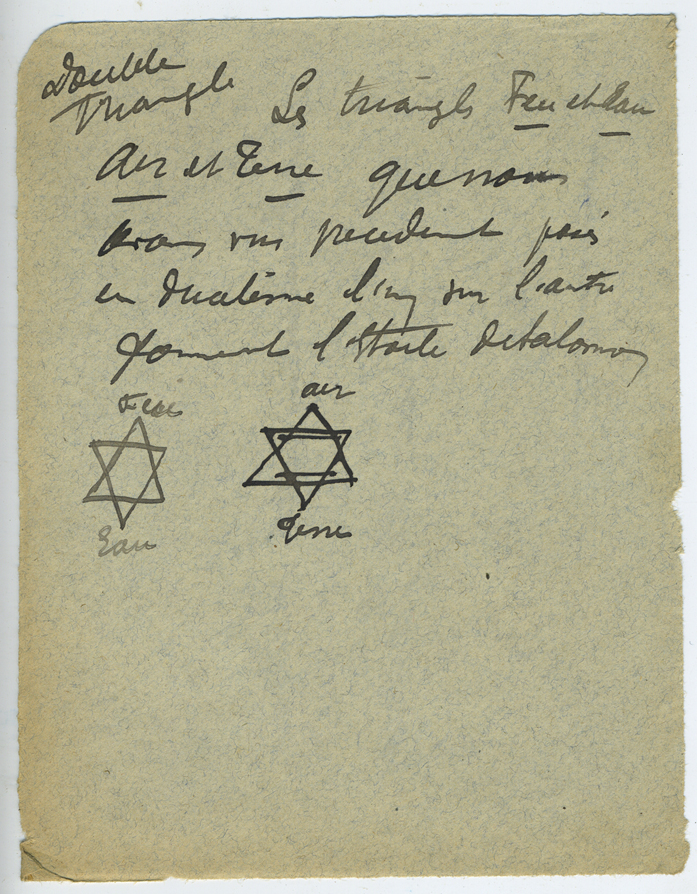 Double
Triangle
Les triangles Feu et Eau
Air et Terre que nous
avons vus precedement posés
en dualisme l'un sur l'autre
forment l'Etoile de Salomon
Feu
air
Eau
Terre